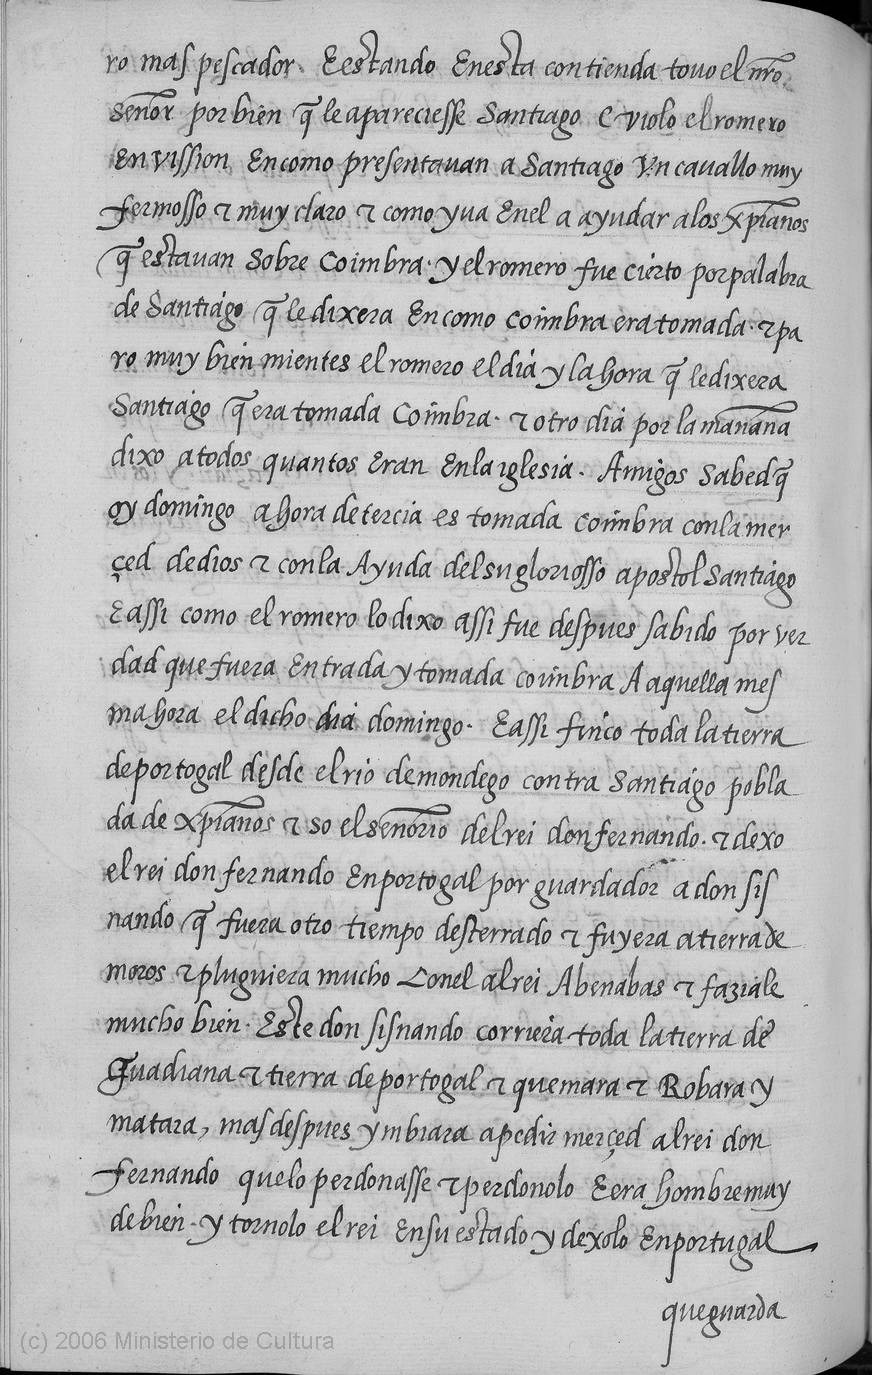 ro mas pescador. E estando En esta contienda touo el nr̃o
señor por bien q̃ le apareciesse Santiago E violo el romero
En vission En como presentauan a Santiago Vn cauallo muy
fermosso & muy claro & como yua En el a ayudar a los xp̃ianos
q̃ estauan sobre Coimbra. y el romero fue cierto por palabra
de Santiago q̃ le dixera En como coimbra era tomada. & pa
ro muy bien mientes el romero el dia y la hora q̃ le dixera
Santiago q̃ era tomada Coimbra. & otro dia por la mañana
dixo a todos quantos Eran En la iglesia. Amigos Sabed q̃
oy domingo a hora de tercia es tomada coimbra con la mer
çed de dios & con la Ayuda del su gloriosso apostol Santiago
E assi como el romero lo dixo assi fue despues sabido por ver
dad que fuera Entrada y tomada coimbra A aquella mes
ma hora el dicho dia domingo. E assi finco toda la tierra
de portogal desde el rio de mondego contra Santiago pobla
da de xp̃ianos & so el señorio del rei don fernando. & dexo
el rei don fernando En portogal por guardador a don sis
nando q̃ fuera otro tiempo desterrado & fuyera a tierra de
moros & pluguiera mucho Con el al rei Abenabas & faziale
mucho bien. Este don sisnando corriera toda la tierra de
Guadiana & tierra de portogal & quemara & Robara y
matara, mas despues ymbiara a pedir merçed al rei don
fernando que lo perdonasse & perdonolo E era hombre muy
de bien. y tornolo el rei En su estado y dexolo En portugal
que guarda
(c) 2006 Ministerio de Cultura